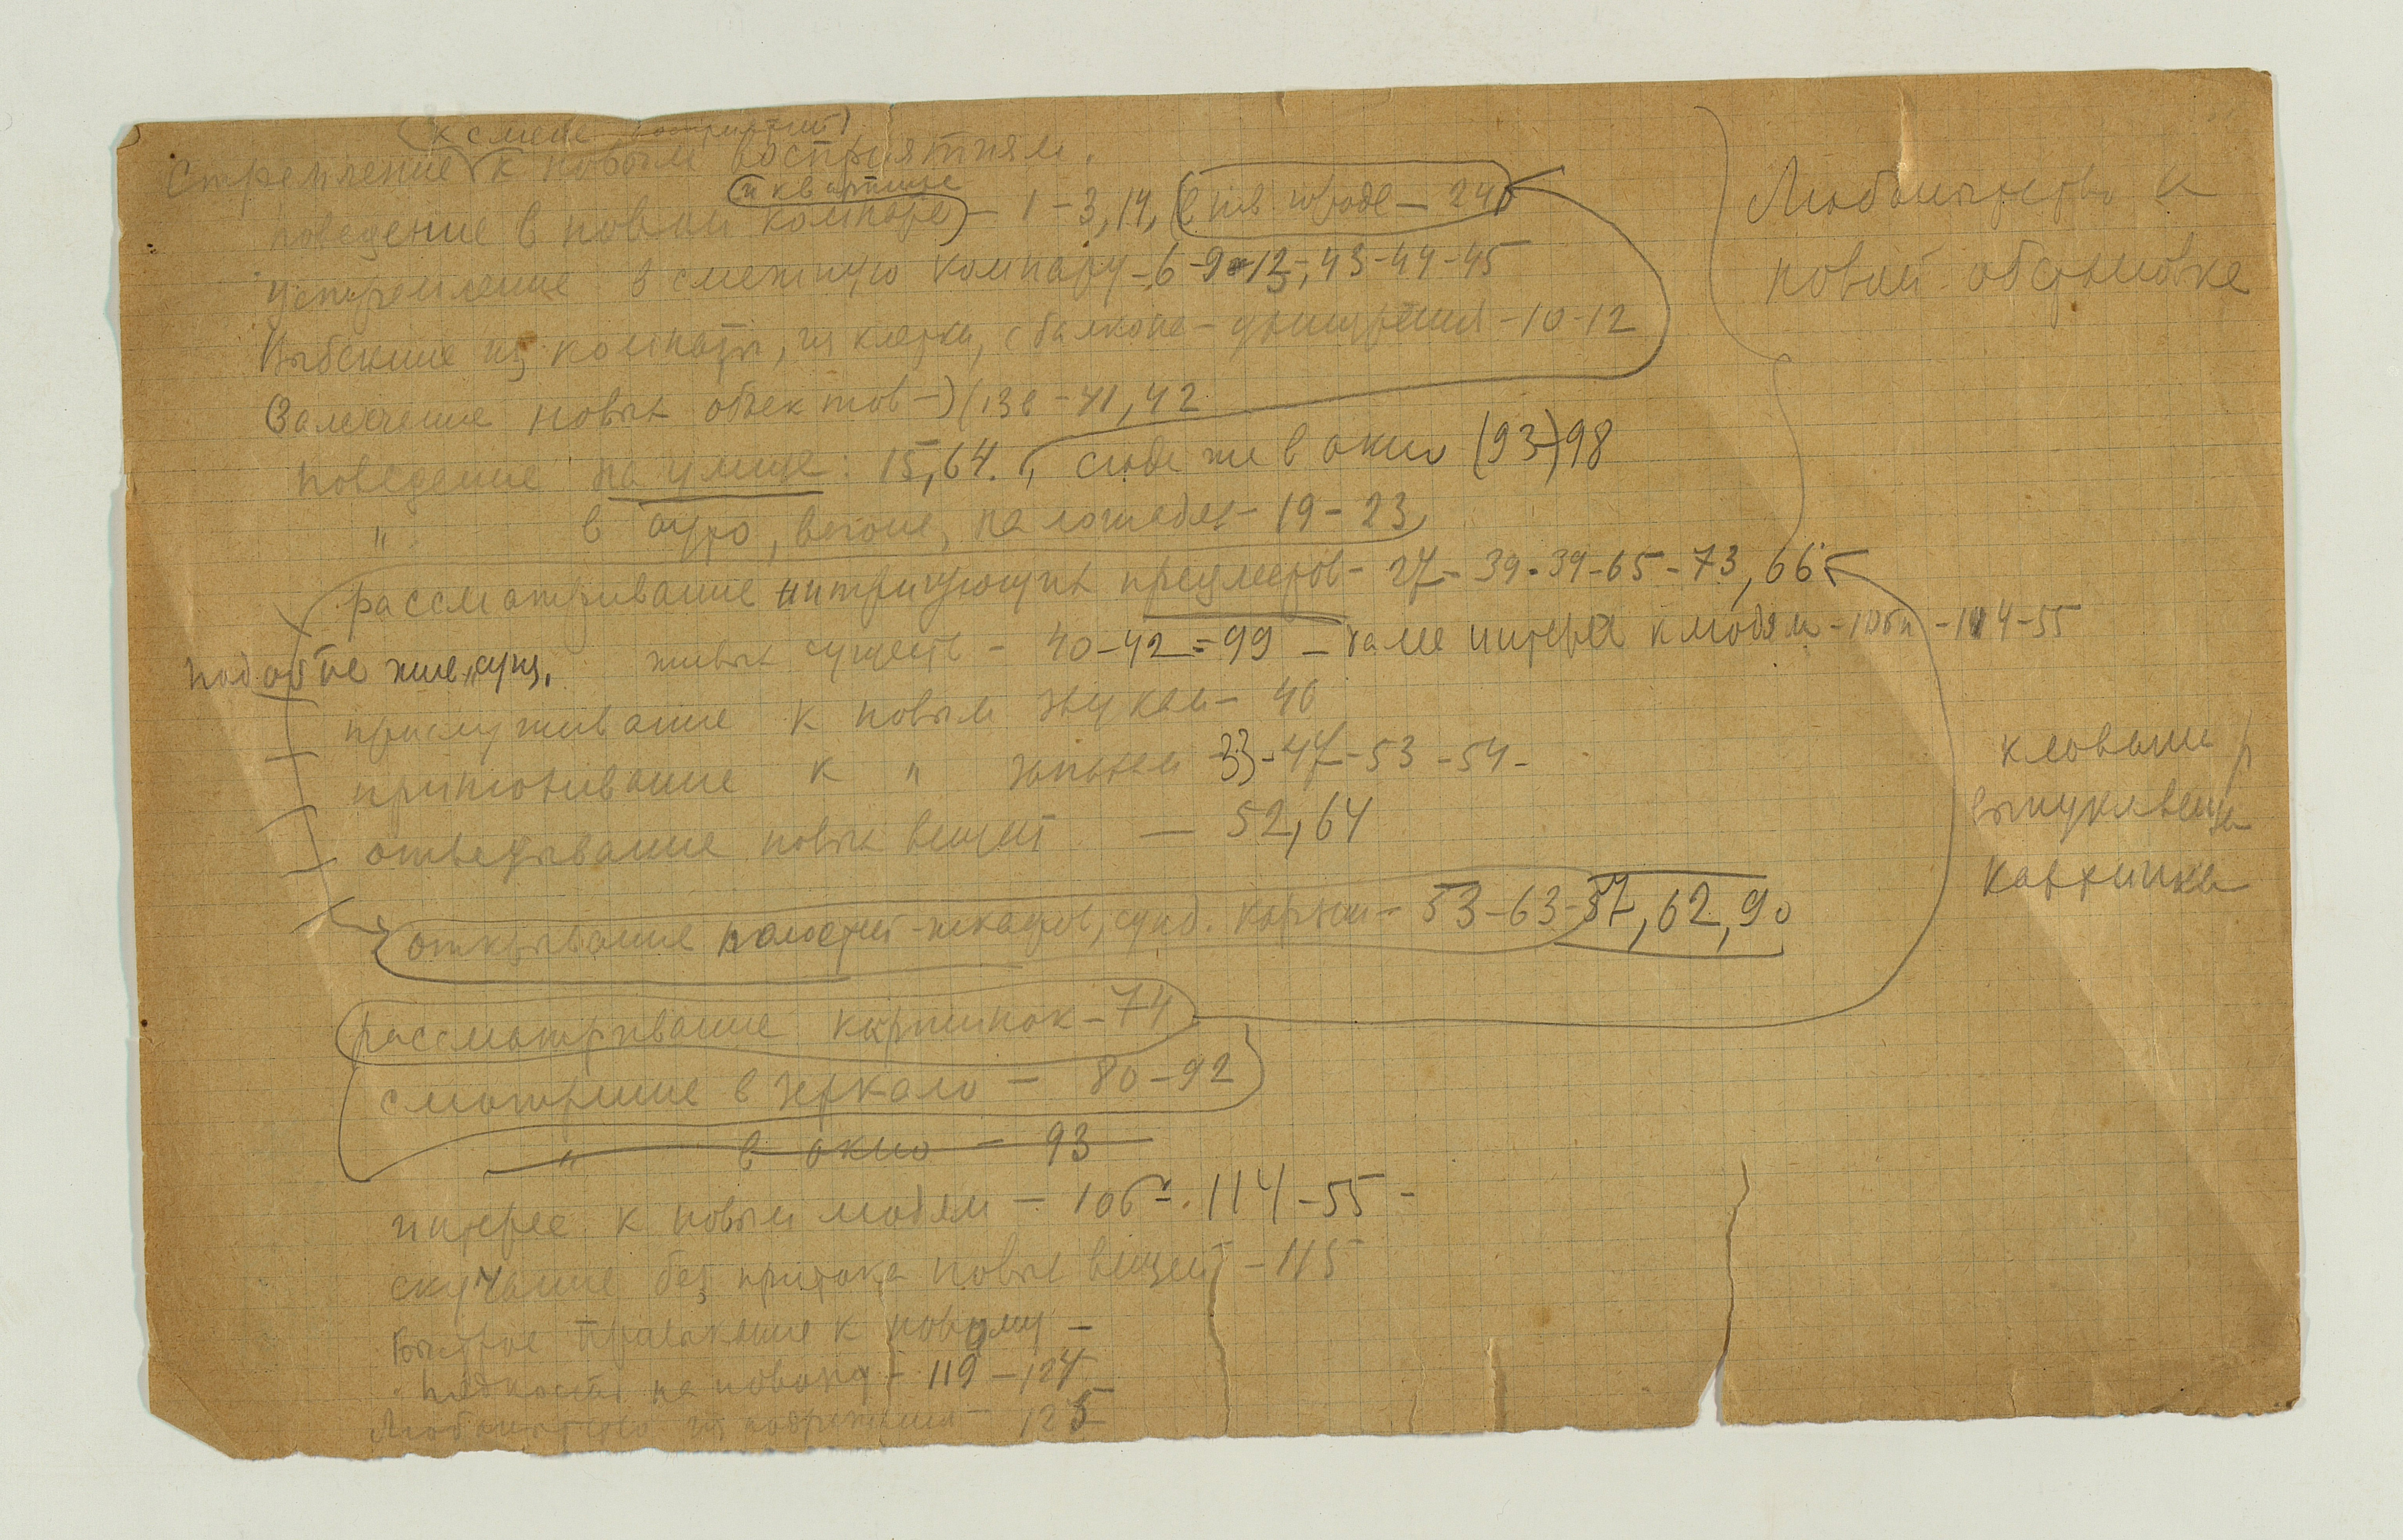 (к смене восприятий)
Стремление к новым восприятиям.
и квартире
поведение в новой комнате – 1 – 3, 14, (в городе – 24)
устремление в смежную комнату – 6 – 9 – 12 –, 43 – 44 – 45
Выбегание из комнаты, из клетки, с балкона – – 10 – 12
(Замечание новых объектов –) (138 – 41, 42
поведение на улице: 15, 64. , сюда же в окно (93–) 98
" в авто, вагоне, на лошадях – 19 – 23
рассматривание интригующих предметов – 27 – 39 – 39 – 65 – 73, 66
живых существ – 40 – 42 = 99 – интерес к людям – 106 – 114 – 55
прислушивание к новым звукам – 40
принюхивание к " запахам 33 – 47 – 53 – 54 –
отведывание новых вещей — 52, 64
открывание полостей – шкафов, сунд. корзин – 53 – 63 – 57, 62, 90
рассматривание картинок – 74
смотрение в зеркало – 80 – 92
" в окно – 93
интерес к новым людям – 106 – 114 – 55 –
скучание без притока новых вещей – 115
Быстрое привыкание к новому –
Падкость на новизну – 119 – 124
Любопытство 125
Любопытство к
новой обстановке
картинка